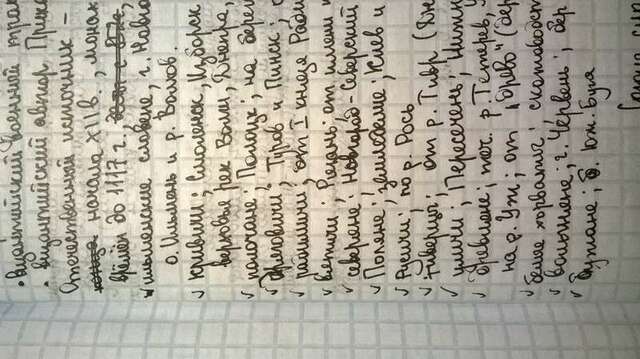 • византийский военный трак
• византийский автор Прис
Отечественный источник –
начала XII в., монах
времен до 1117 г.
✓ ильменские словене, г. Новго
о. Ильмень и р. Волхов.
✓ Кривичи; Смоленск, Изборск
верховье рек Волги, Днепра,
✓ полочане; Полоцк; на бере
✓ Дреговичи; Туров и Пинск;
✓ радимичи; от I князя Ради
✓ вятичи; Рязань; от имени
✓ северяне; Новгород-Северский
✓ Поляне; земледелие; Киев и
✓ Русичи; по р. Рось
✓ тиверцы; от р. Тивр (Дн
✓ уличи; Пересечень; Нижн
✓ древляне; теч. р. Тетерев, у
на р. Уж; от „древо" (дер
✓ белые хорваты; скотоводст
✓ волыняне; г. Червень; дер
✓ бужане; р. Юж. Буга